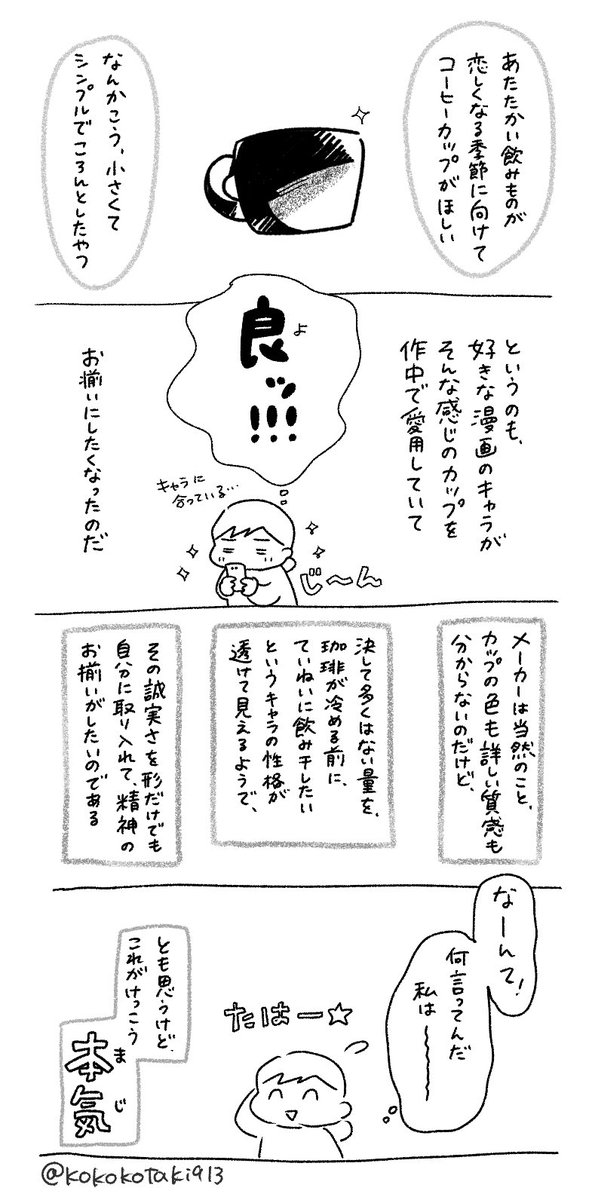 あたたかい飲みものが
恋しくなる季節に向けて
コーヒーカップがほしい
なんかこう、小さくて
シンプルでころんとしたやつ
というのも、
好きな漫画のキャラが
そんな感じのカップを
作中で愛用していて
良ッ!!!
よ
キャラに
合っている…
じ〜ん
お揃いにしたくなったのだ
メーカーは当然のこと、
カップの色も詳しい質感も
分からないのだけど、
決して多くはない量を、
珈琲が冷める前に、
ていねいに飲み干したい
というキャラの性格が
透けて見えるようで、
その誠実さを形だけでも
自分に取り入れて、精神の
お揃いがしたいのである
なーんて!
何言ってんだ
私は〜〜〜
たはー☆
とも思うけど、
これがけっこう
本気
まじ
@kokokotaki913